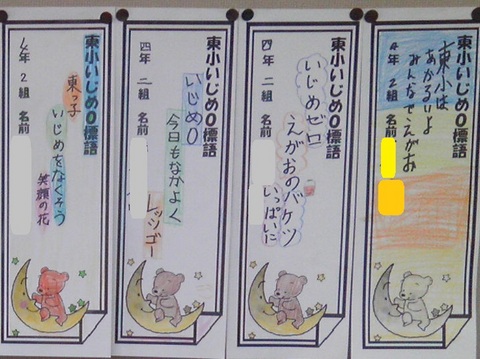 東小いじめ0標語
東小は
あかるいよ
みんなでえがお
4年 2組 名前
東小いじめ0標語
いじめゼロ
えがおのバケツ
いっぱいに
四年 二組 名前
東小いじめ0標語
いじめ0
今日もなかよく
レッツゴー
四年 二組 名前
東小いじめ0標語
東っ子
いじめをなくそう
笑顔の花
4年 2組 名前